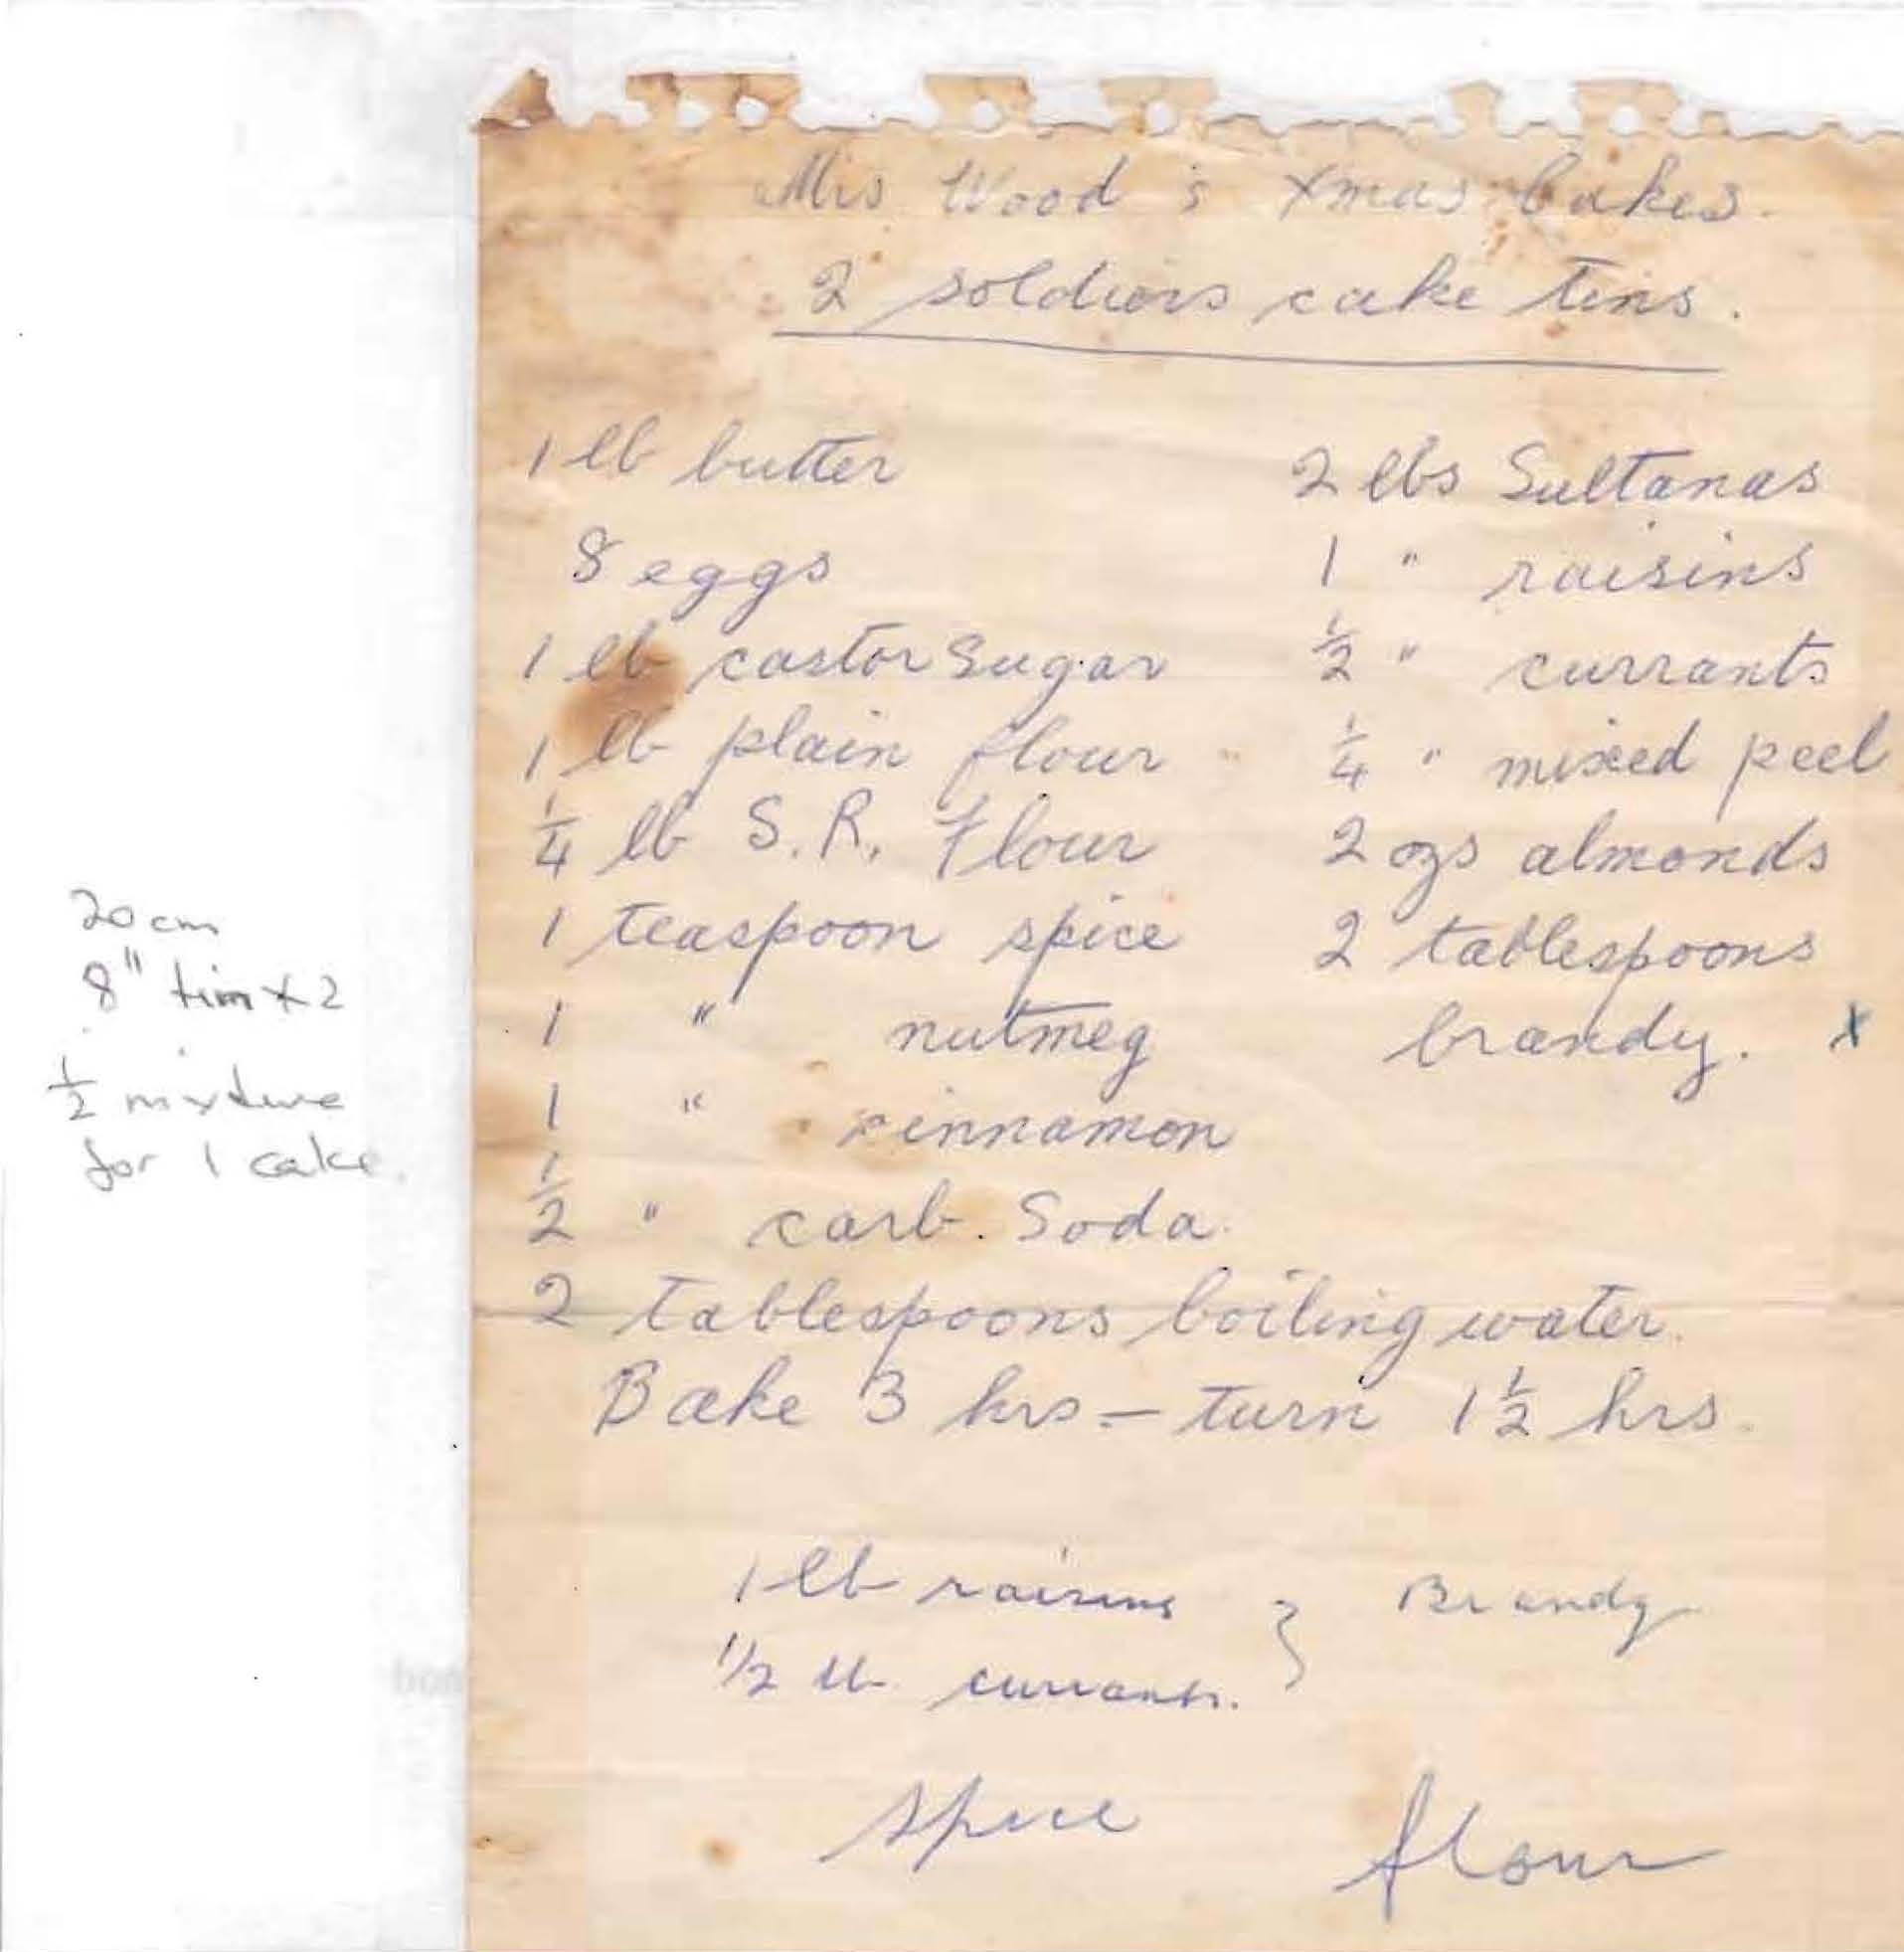 Mrs Wood's Xmas Cakes.
2 soldiers cake tins.
1 lb butter
8 eggs
1 lb castor Sugar
1 lb plain flour
1/4 lb S.R. Flour
1 teaspoon spice
1 " nutmeg
1 " cinnamon
1/2 " carb. Soda.
2 lbs Sultanas
1 " raisins
1/2 " currants
1/4 " mixed peel
2 ozs almonds
2 tablespoons
brandy. x
2 tablespoons boiling water.
Bake 3 hrs - turn 1 1/2 hrs.
1 lb raisins } Brandy
1/2 lb currants.
spice flour
20 cm
8" tin x 2
1/2 mixture
for 1 cake.